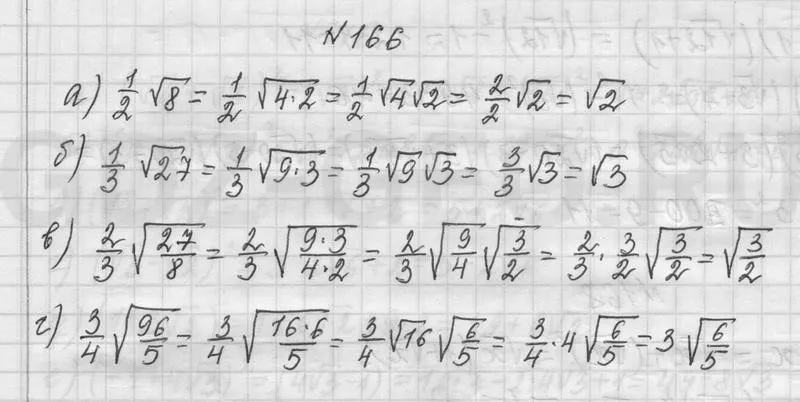 №166
а) 1/2 √8 = 1/2 √(4·2) = 1/2 √4 √2 = 2/2 √2 = √2
б) 1/3 √27 = 1/3 √(9·3) = 1/3 √9 √3 = 3/3 √3 = √3
в) 2/3 √(27/8) = 2/3 √((9·3)/(4·2)) = 2/3 √(9/4) √(3/2) = 2/3 · 3/2 √(3/2) = √(3/2)
г) 3/4 √(96/5) = 3/4 √((16·6)/5) = 3/4 √16 √(6/5) = 3/4 · 4 √(6/5) = 3 √(6/5)